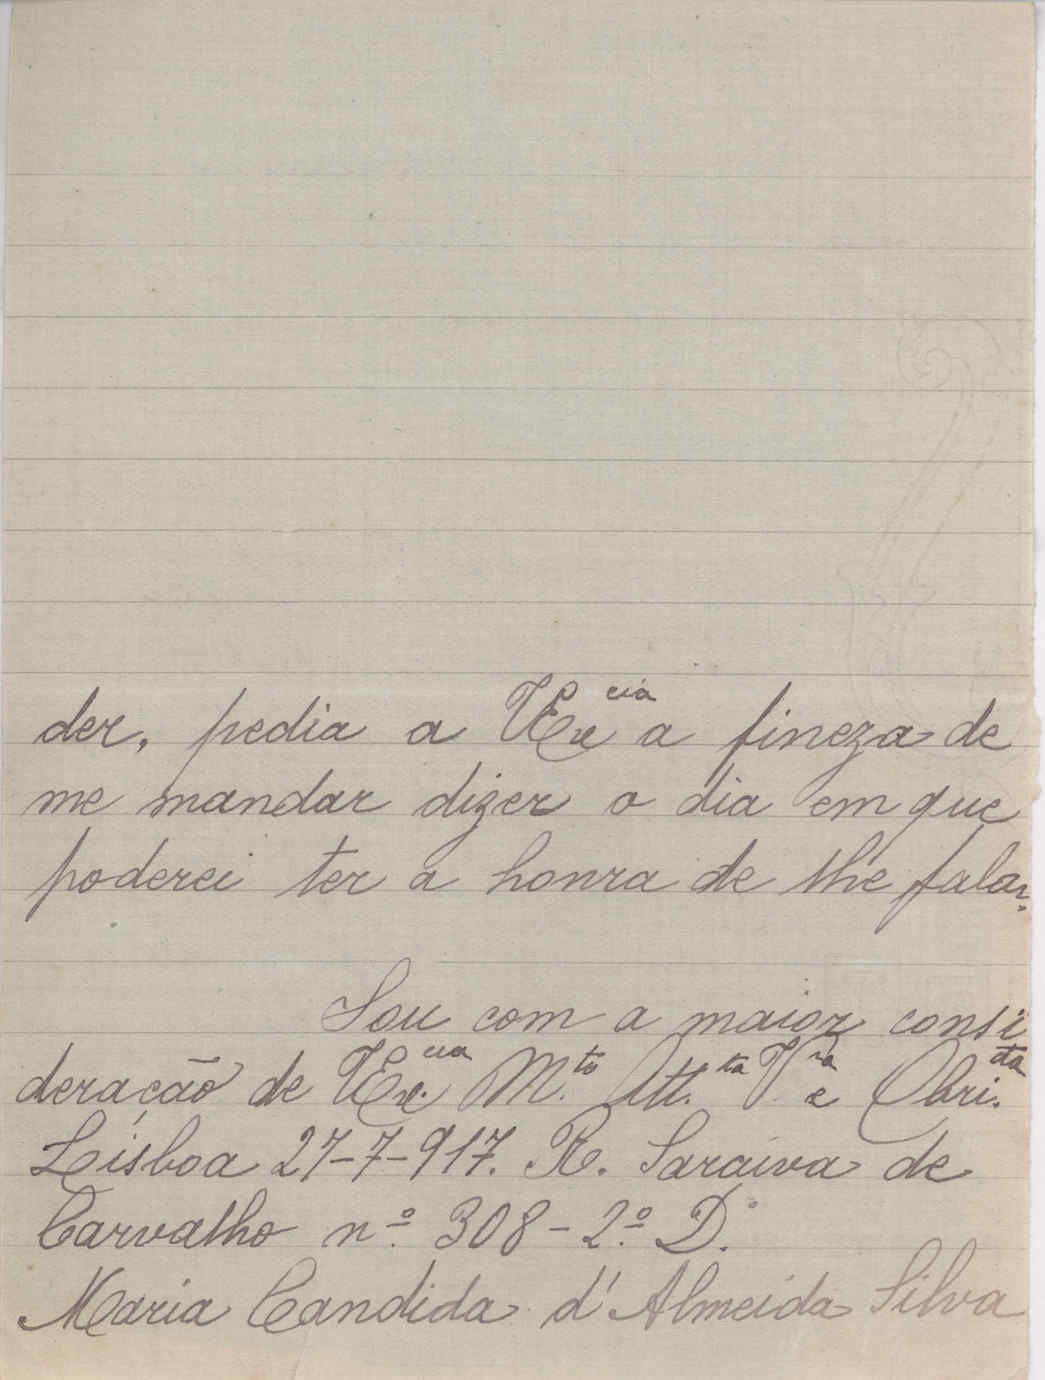 der, pedia a VEx.cia a fineza de
me mandar dizer o dia em que
poderei ter a honra de lhe falar.
Sou com a maior consi
deração de VEx.cia M.to Att.ta V.ra e Obri.da
Lisboa 27-7-917. R. Saraiva de
Carvalho nº. 308-2º. D.
Maria Candida d'Almeida Silva